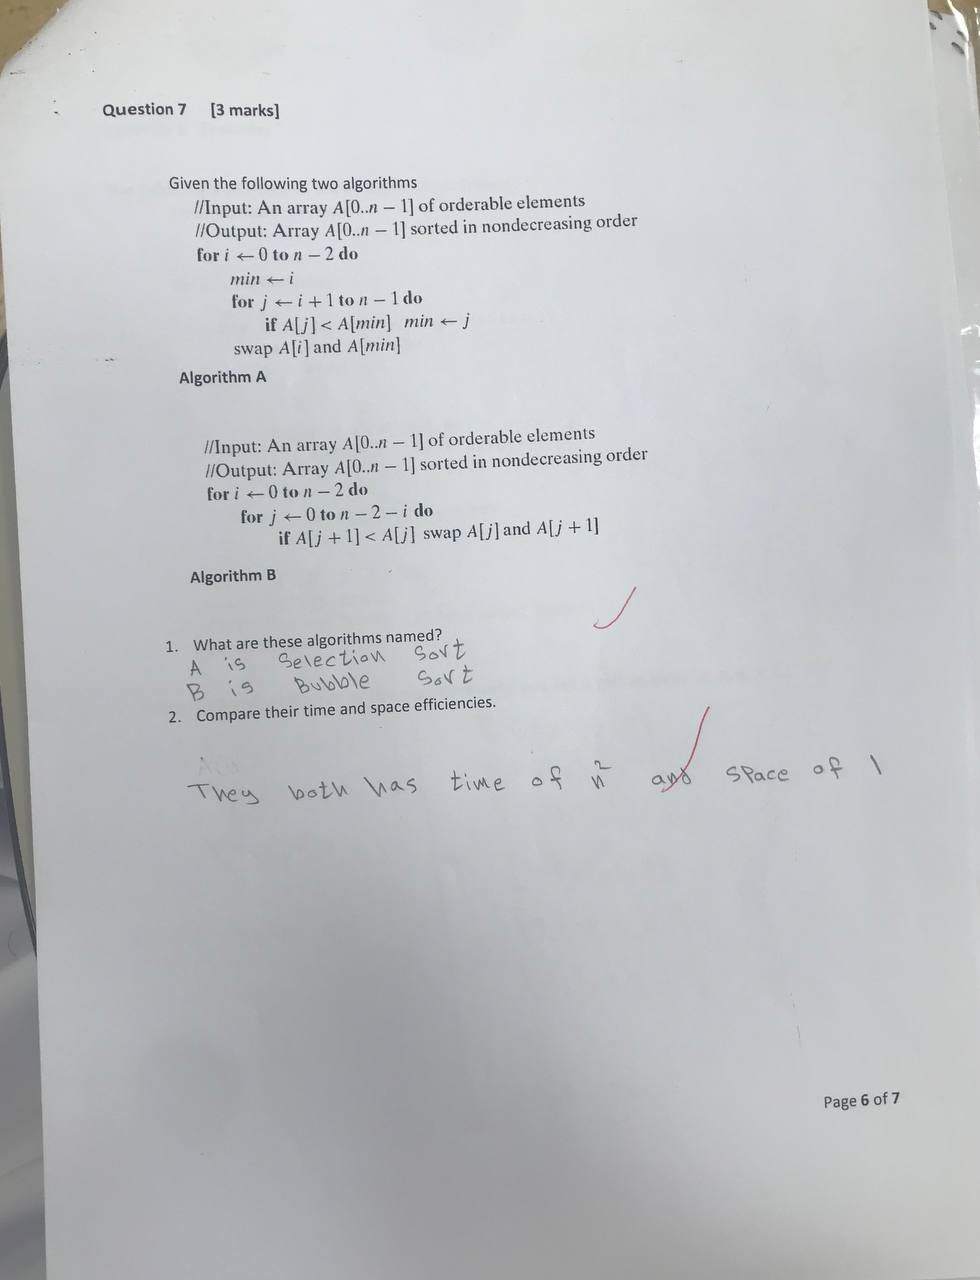 Question 7 [3 marks]
Given the following two algorithms
//Input: An array A[0..n – 1] of orderable elements
//Output: Array A[0..n – 1] sorted in nondecreasing order
for i ← 0 to n – 2 do
min ← i
for j ← i + 1 to n – 1 do
if A[j] < A[min] min ← j
swap A[i] and A[min]
Algorithm A
//Input: An array A[0..n – 1] of orderable elements
//Output: Array A[0..n – 1] sorted in nondecreasing order
for i ← 0 to n – 2 do
for j ← 0 to n – 2 – i do
if A[j + 1] < A[j] swap A[j] and A[j + 1]
Algorithm B
1. What are these algorithms named?
A is Selection Sort
B is Bubble Sort
2. Compare their time and space efficiencies.
They both has time of n² and space of 1
Page 6 of 7